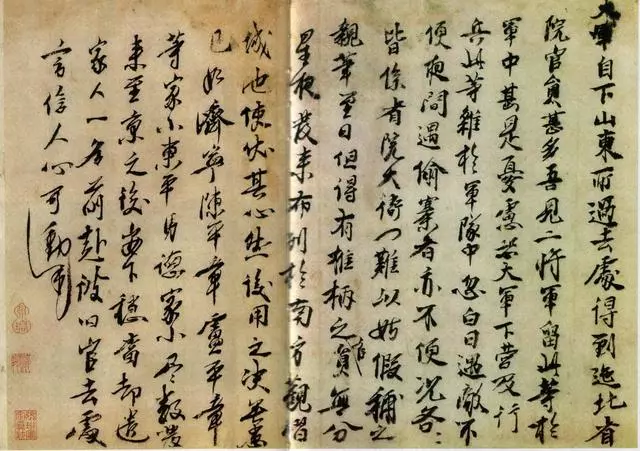 大軍自下山東所過去處得到迤北省
院官員甚多吾見二將軍留此等於
軍中甚是憂慮恐大軍下營及行
兵此等雜於軍隊中忽白日遇敵不
便夜間遇偷寨者亦不便況各〻
皆係省院大衙門難以姑假補之
親筆至日但得有權柄之官員無分
星夜發來布列於南方觀習
城池使伏其心然後用之決無患
已如濟寧陳平章盧平章
等家小東平馬德家小盡數發
來至京之後安下穩當却遣
家人一名前赴彼旧官去處
言信人心可動